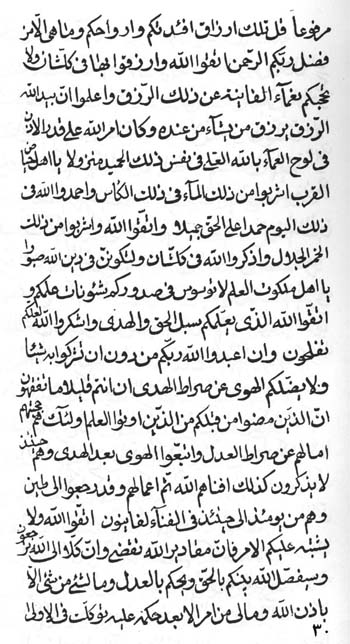 مرفوعاً قل تلك ارزاق افئدتكم وارواحكم وما هى الّا من
فضل ربّكم الرحمن اتقوا الله وارزقوا بها فى كلّ شان ولا
يحجبكم نعمآء الفانية عن ذلك الرّزق واعلموا انّ بيد الله
الرّزق يرزق من يشآء من عنده وكان امر الله على قدر
فى لوح العمآء بالله العلى فى نفس ذلك الحميد منزولا يا اهل
القرب اشربوا من ذلك المآء فى ذلك الكأس واحمدوا الله فى
ذلك اليوم حمداً على الحق جميلا واتقوا الله واشربوا من ذلك
الخمر الجلال واذكروا الله فى كلّ شان ولتكوننّ فى دين الله صبورا
يا اهل ملكوت العلم لا يوسوس فى صدوركم شئونات علمكم و
اتقوا الله الذى يعلّمكم سبل الحق والهدى واشكروا الله لعلكم
تفلحون وان اعبدوا الله ربّكم من دون ان تشركوا به شيئا
ولا يضلّكم الهوى عن صراط الهدى ان انتم قليلا ما تفقهون
انّ الّذين مضوا من قبلكم من الّذين اوتوا العلم ولئك هم
امالهم عن صراط العدل واتّبعوا الهوى بعد الهدى وهم حينئذ
لا يذكرون كذلك افناهم الله ثم اعمالهم وقد رجعوا الى طين
وهم من يومئذ الى حينئذ فى الفنآء لفانيون اتقوا الله ولا
يشتبه عليكم الامر فانّ مقادير الله تقضى وانّ كلّا الى الله ترجعون
وسيفصل الله بينكم بالحق ويحكم بالعدل وما لشئ من شئ الّا
باذن الله وما لى من امر الّا بعد حكمه عليه توكلت فى الاولى
٣٠